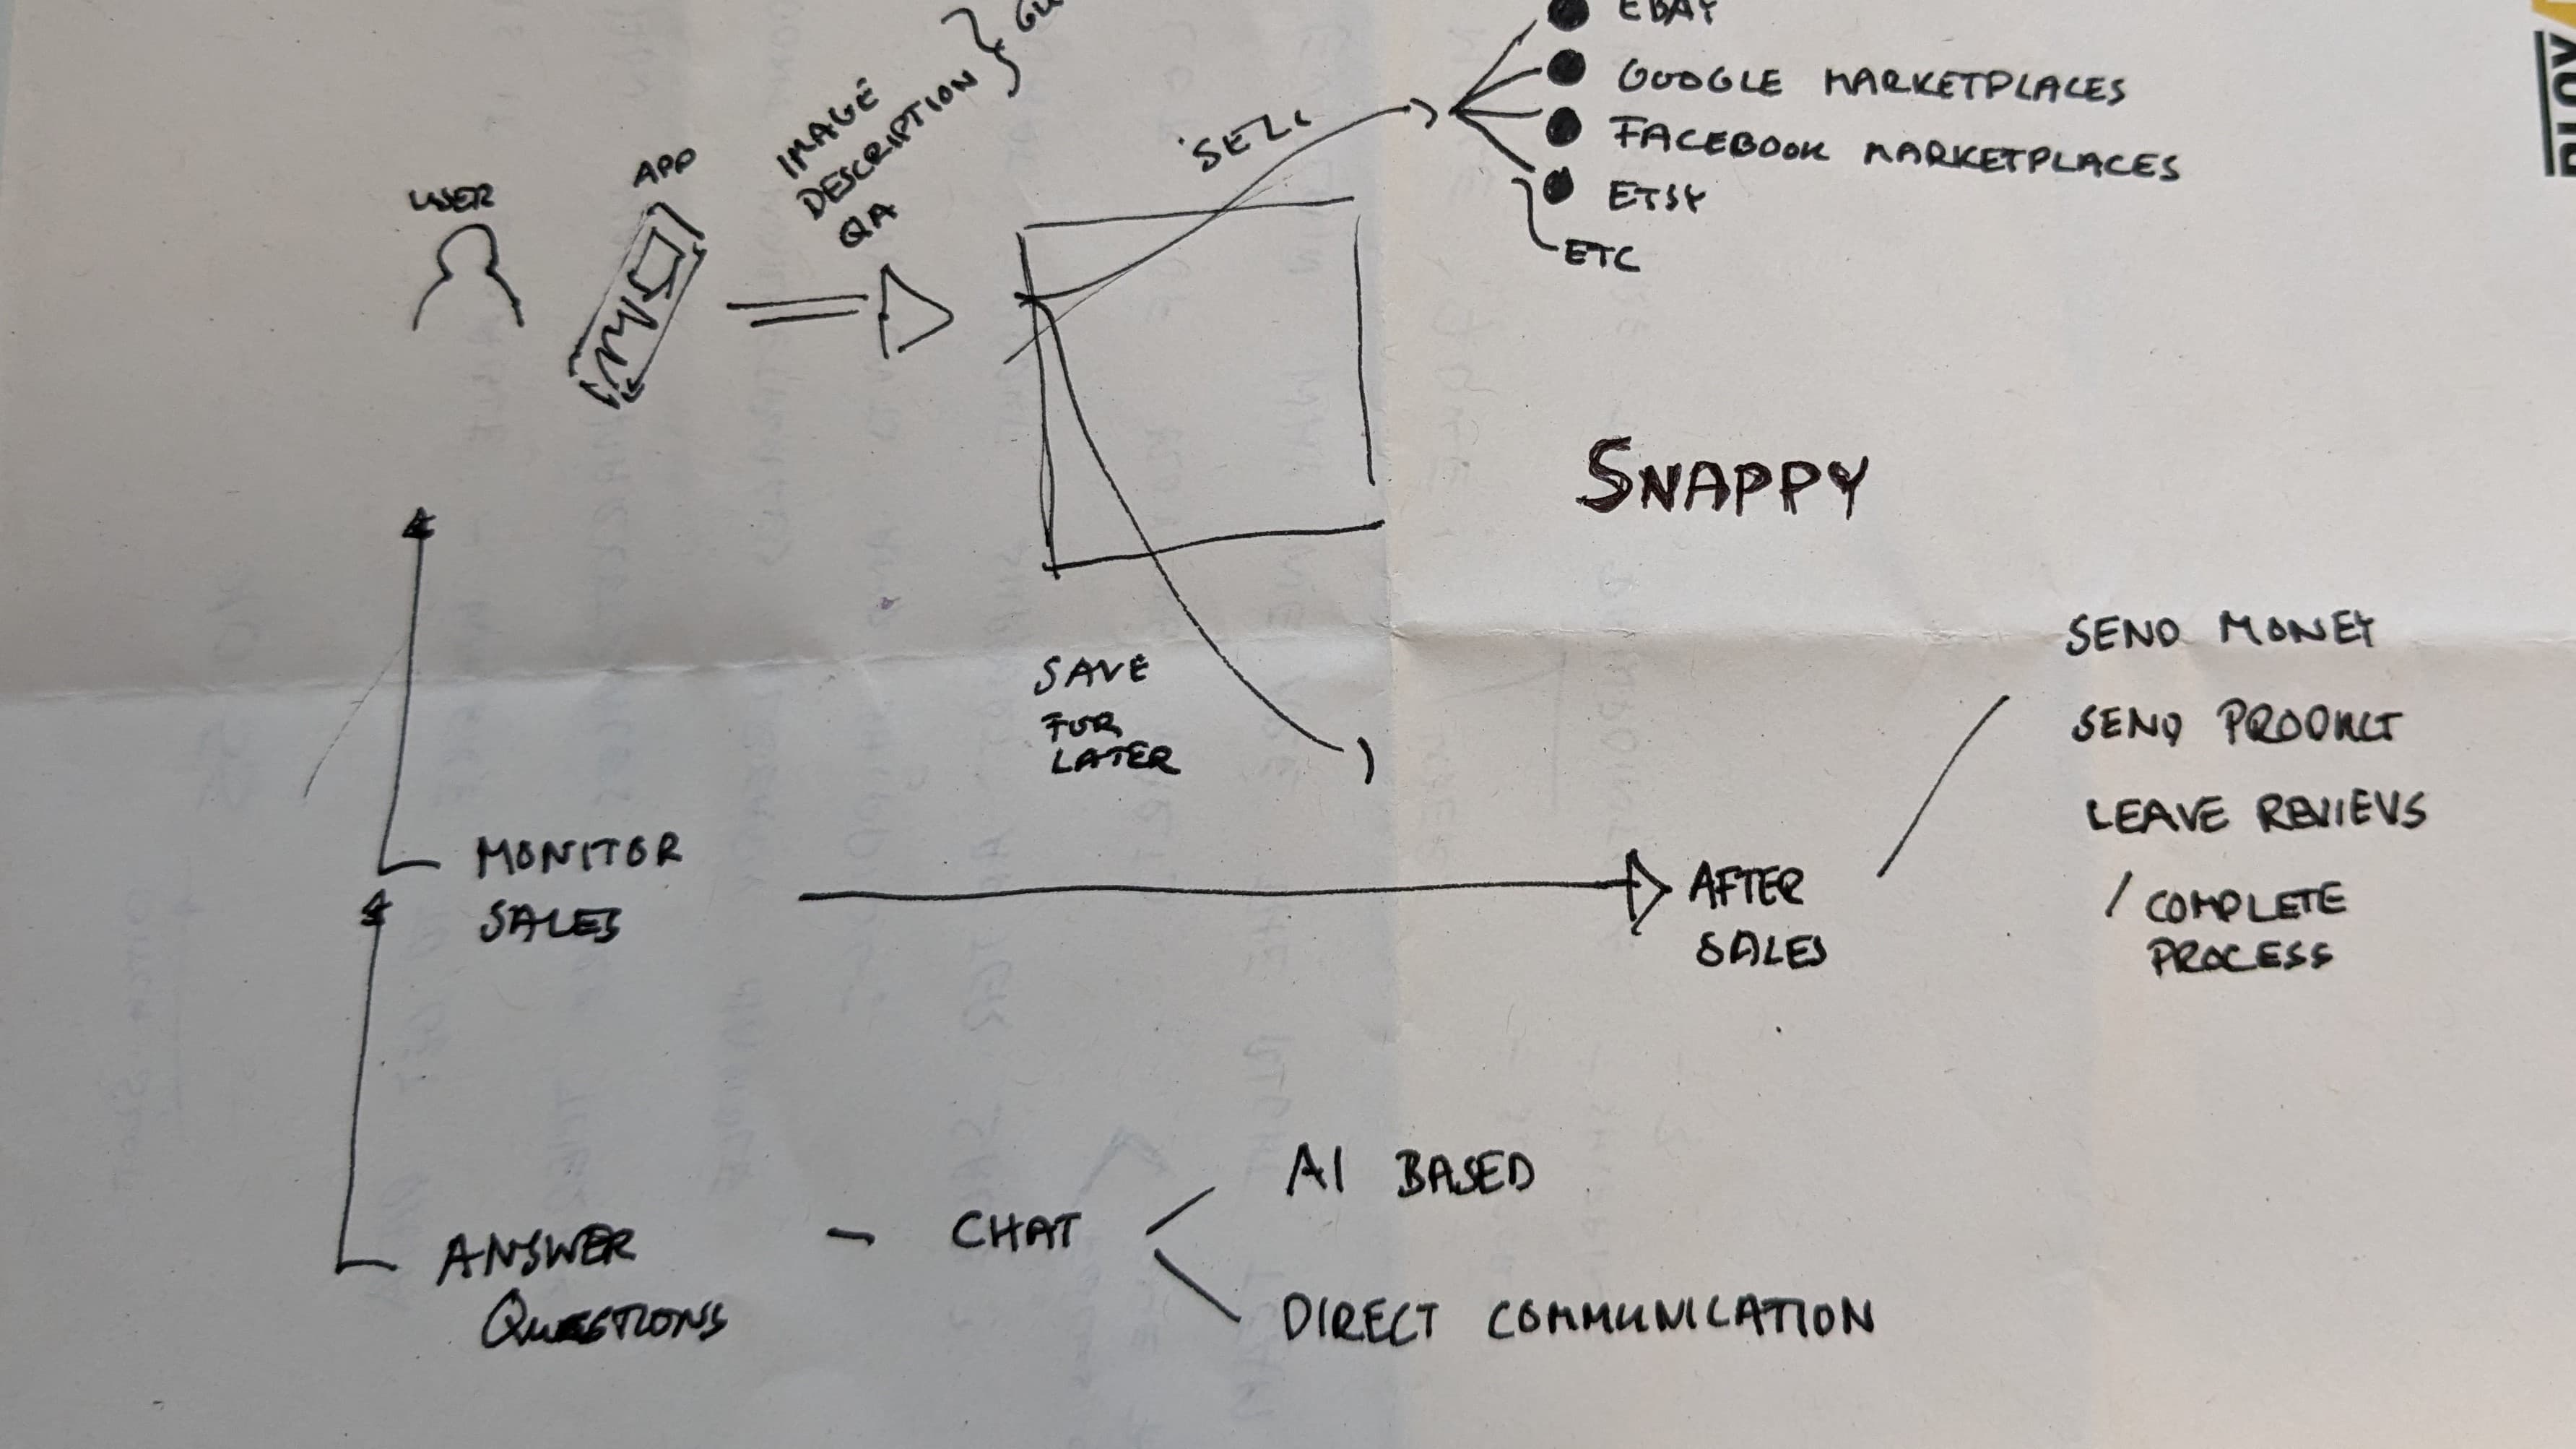 EBAY
GOOGLE MARKETPLACES
FACEBOOK MARKETPLACES
ETSY
ETC
USER
APP
IMAGE
DESCRIPTION
QA
SELL
SNAPPY
SAVE
FOR
LATER
MONITOR
SALES
AFTER
SALES
SEND MONEY
SEND PRODUCT
LEAVE REVIEVS
/ COMPLETE
PROCESS
ANSWER
QUESTIONS
- CHAT
AI BASED
DIRECT COMMUNICATION